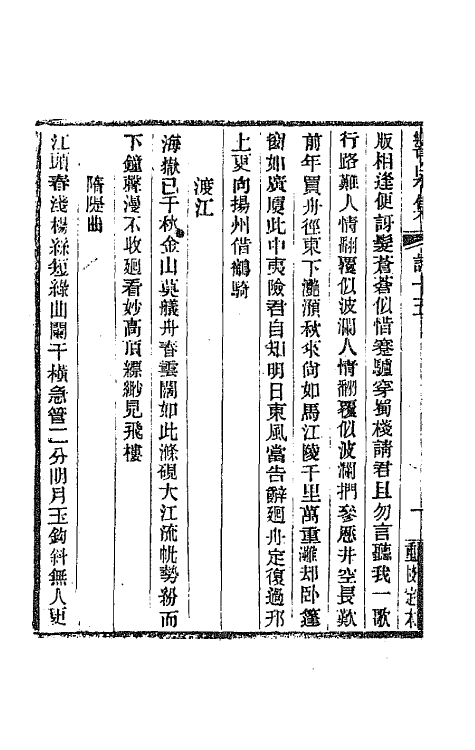 版相逢便訝髮蒼蒼似惜蹇驢穿蜀棧請君且勿言聽我一歌
行路難人情翻覆似波瀾人情翻覆似波瀾捫參歷井空長歎
前年買舟徑東下灩澦秋來尙如馬江陵千里萬重灘却臥篷
窗如廣廈此中夷險君自知明日東風當告辭迴舟定復過邗
上更向揚州借鶴騎
渡江
海嶽已千秋金山莫艤舟春雲闊如此滌硯大江流帆勢粉而
下鐘聲漫不收迴看妙高頂縹緲見飛樓
隋隄曲
江頭春淺楊絲短綠曲闌干橫急管二分明月玉鉤斜無人更